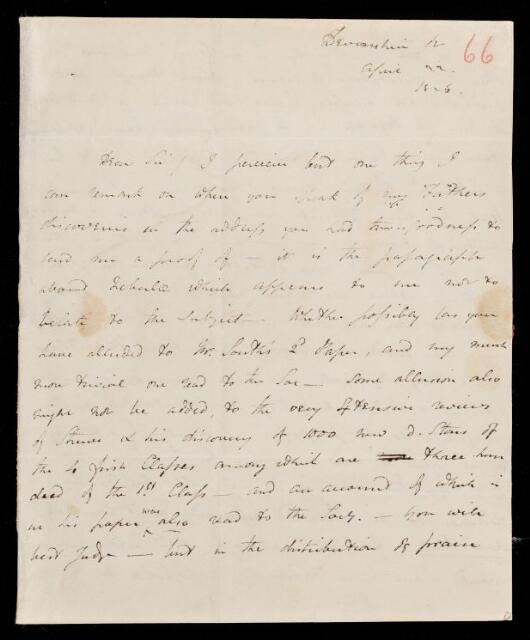 Devonshire St 66
April 22.
1826.
Dear Sir / I perceive but one thing I
can remark on when you speak of my Fathers
discoveries in the address you had the goodness to
send me a proof of – it is the paragraph
about Nebulae which appears to me not to
relate to the subject – Whether possibly (as you
have alluded to Mr. South's 2d Paper, and my much
more trivial one read to the Soc – some allusion also
might not be added, to the very extensive reviews
of Struve & his discovery of 1000 new d. Stars of
the 4 first Classes among which are three hun
dred of the 1st Class – and an account of which is
in his paper was also read to the Socy. – You will
best Judge – but in the distribution of praise